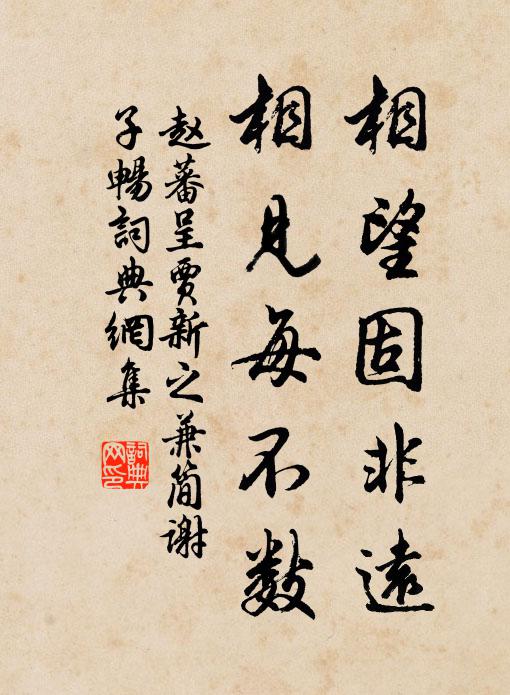 相望固非遠
相見每不数
赵蕃呈賈新之兼簡谢
子暢詞典網集
詞典
网印